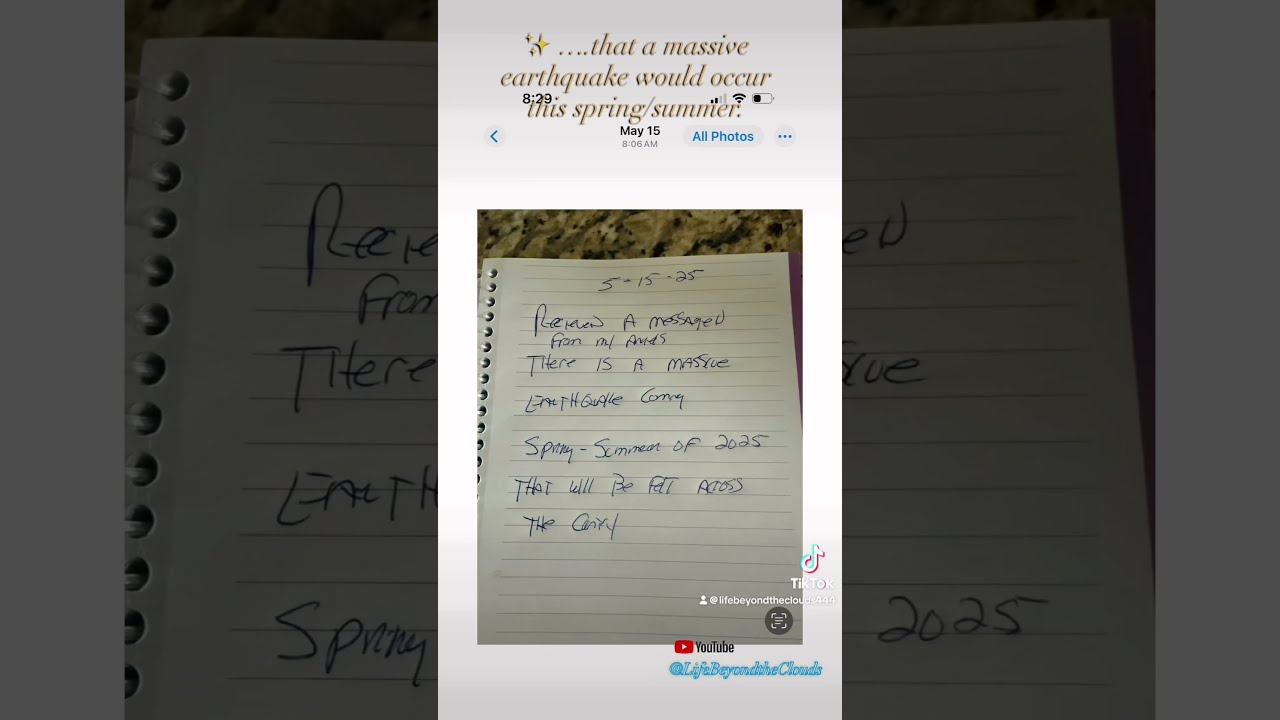 ✨ ....that a massive
earthquake would occur
this spring/summer.
8:29
May 15
8:06 AM
All Photos
5-15-25
Recieved A messageD
from my
THere IS A mAssive
EARTHQUAKE Coming
Spring - Summer OF 2025
THAT will Be Felt Across
THe
TikTok
@lifebeyondtheclouds444
YouTube
@LifeBeyondtheClouds
Recie
From
THere
EARTH
Spring
eD
ive
2025